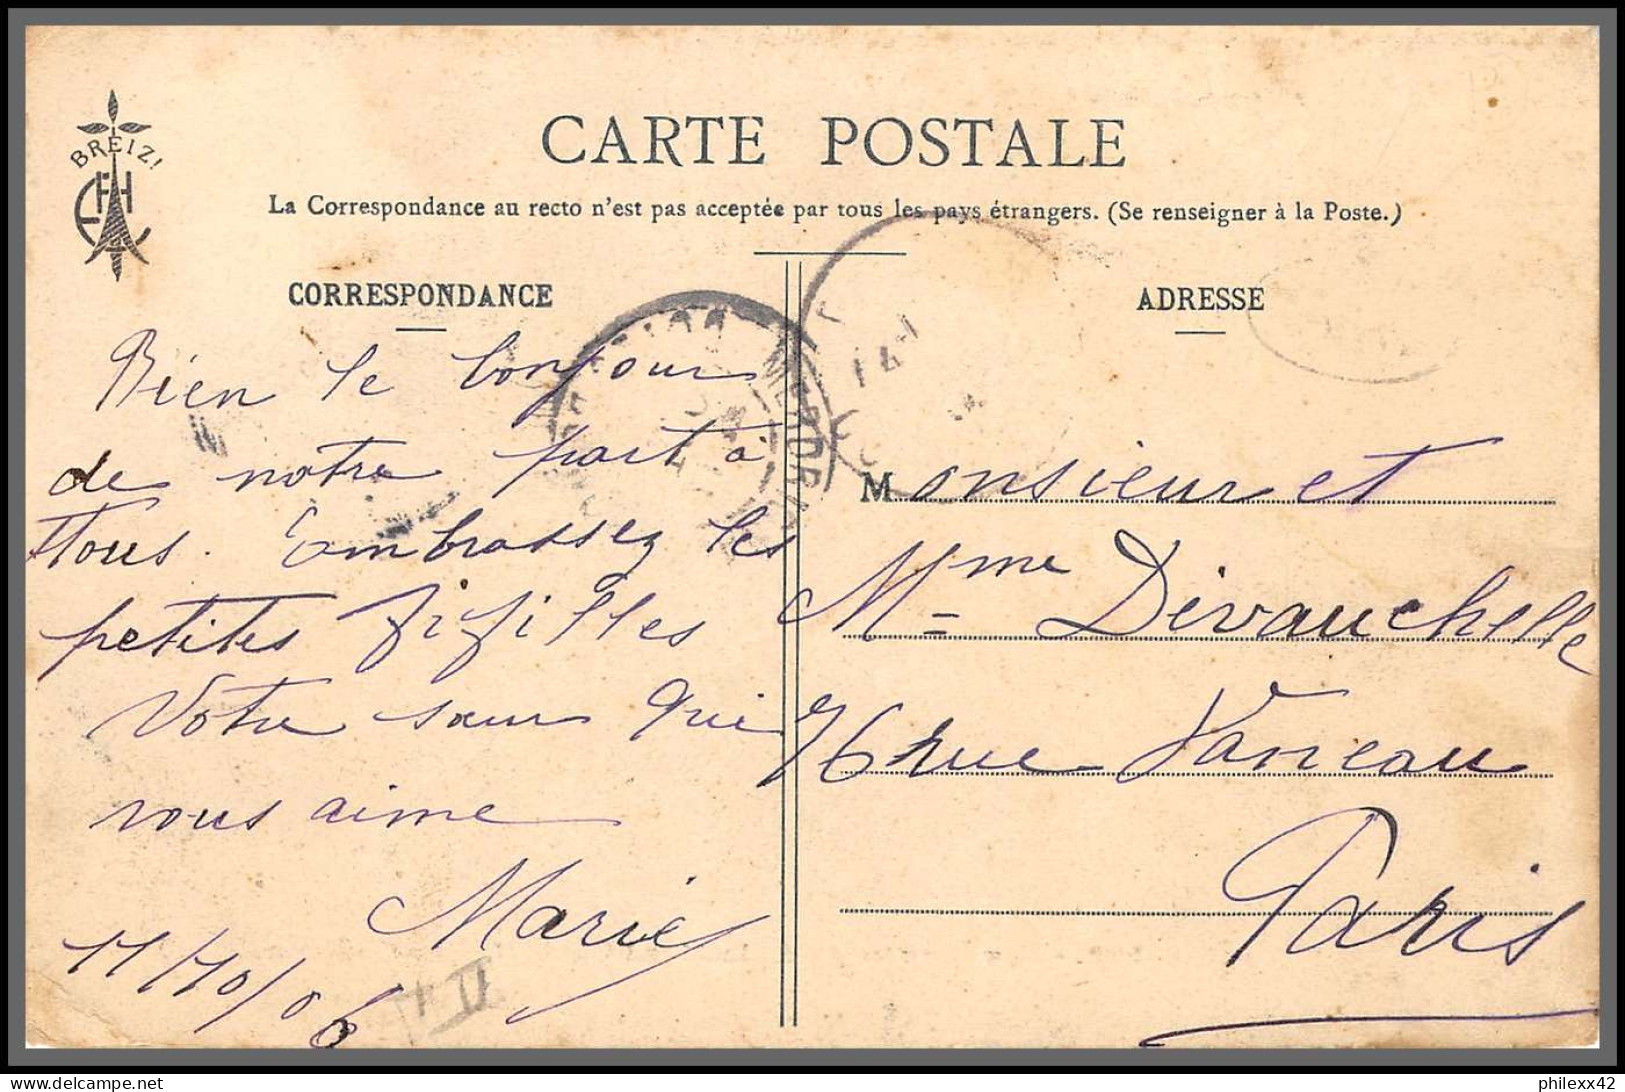 BREIZ!
CARTE POSTALE
La Correspondance au recto n'est pas acceptée par tous les pays étrangers. (Se renseigner à la Poste.)
CORRESPONDANCE
Bien le bonjour
de notre part à
tous. Embrassez les
petites fifilles
Votre sœur qui
vous aime
Marie
11/10/06
ADRESSE
Monsieur et
Mme Dévauchelle
76 rue Vaneau
Paris
philexx42